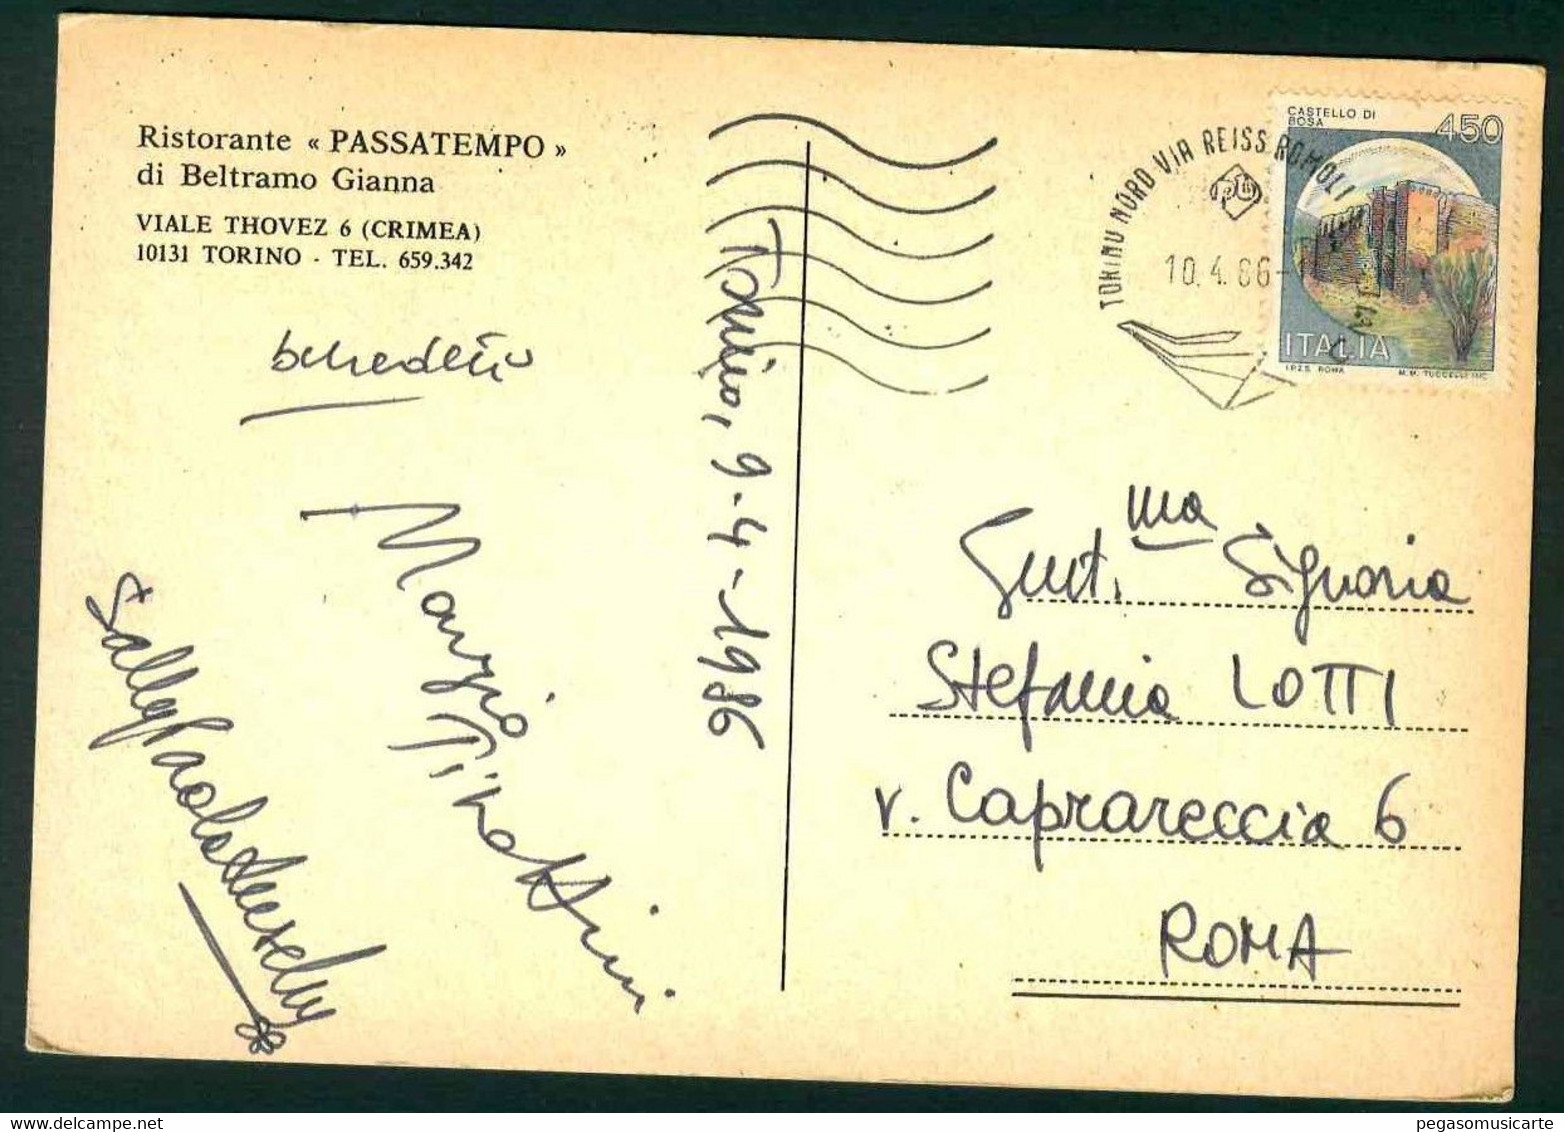 Ristorante « PASSATEMPO »
di Beltramo Gianna
VIALE THOVEZ 6 (CRIMEA)
10131 TORINO - TEL. 659.342
Torino, 9-4-1986
TORINO NORD VIA REISS ROMOLI
10.4.86
CASTELLO DI
BOSA
450
ITALIA
I.P.Z.S. ROMA
M.M. TUCCELLI INC.
Gent.ma Signoria
Stefania LOTTI
v. Caprareccia 6
ROMA
Marzio
Sally Paola
pegasomusicarte